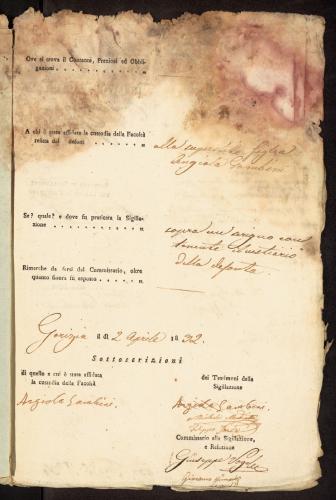 Ove si trova il Contante, Preziosi ed Obbli-
gazioni . . . . . . . . . . . »
A chi è stata affidata la custodia della Facoltà
relitta dal defonti . . . . . . . »
alla figlia
Angiola Gambini
Se? quale? e dove fu praticata la Sigilla-
zione . . . . . . . . . . . »
sopra un' con
tenente
della defonta.
Rimarche da farsi dal Commissario, oltre
quanto finora fu esposto . . . . . . »
Gorizia li di 2 Aprile 1832.
Sottoscrizioni
di quello a cui è stata affidata
la custodia della Facoltà
Angiola Gambini.
dei Testimonj della
Sigillazione
Angiola Gambini.
Commissario alla Sigillazione,
e Relazione
Giuseppe